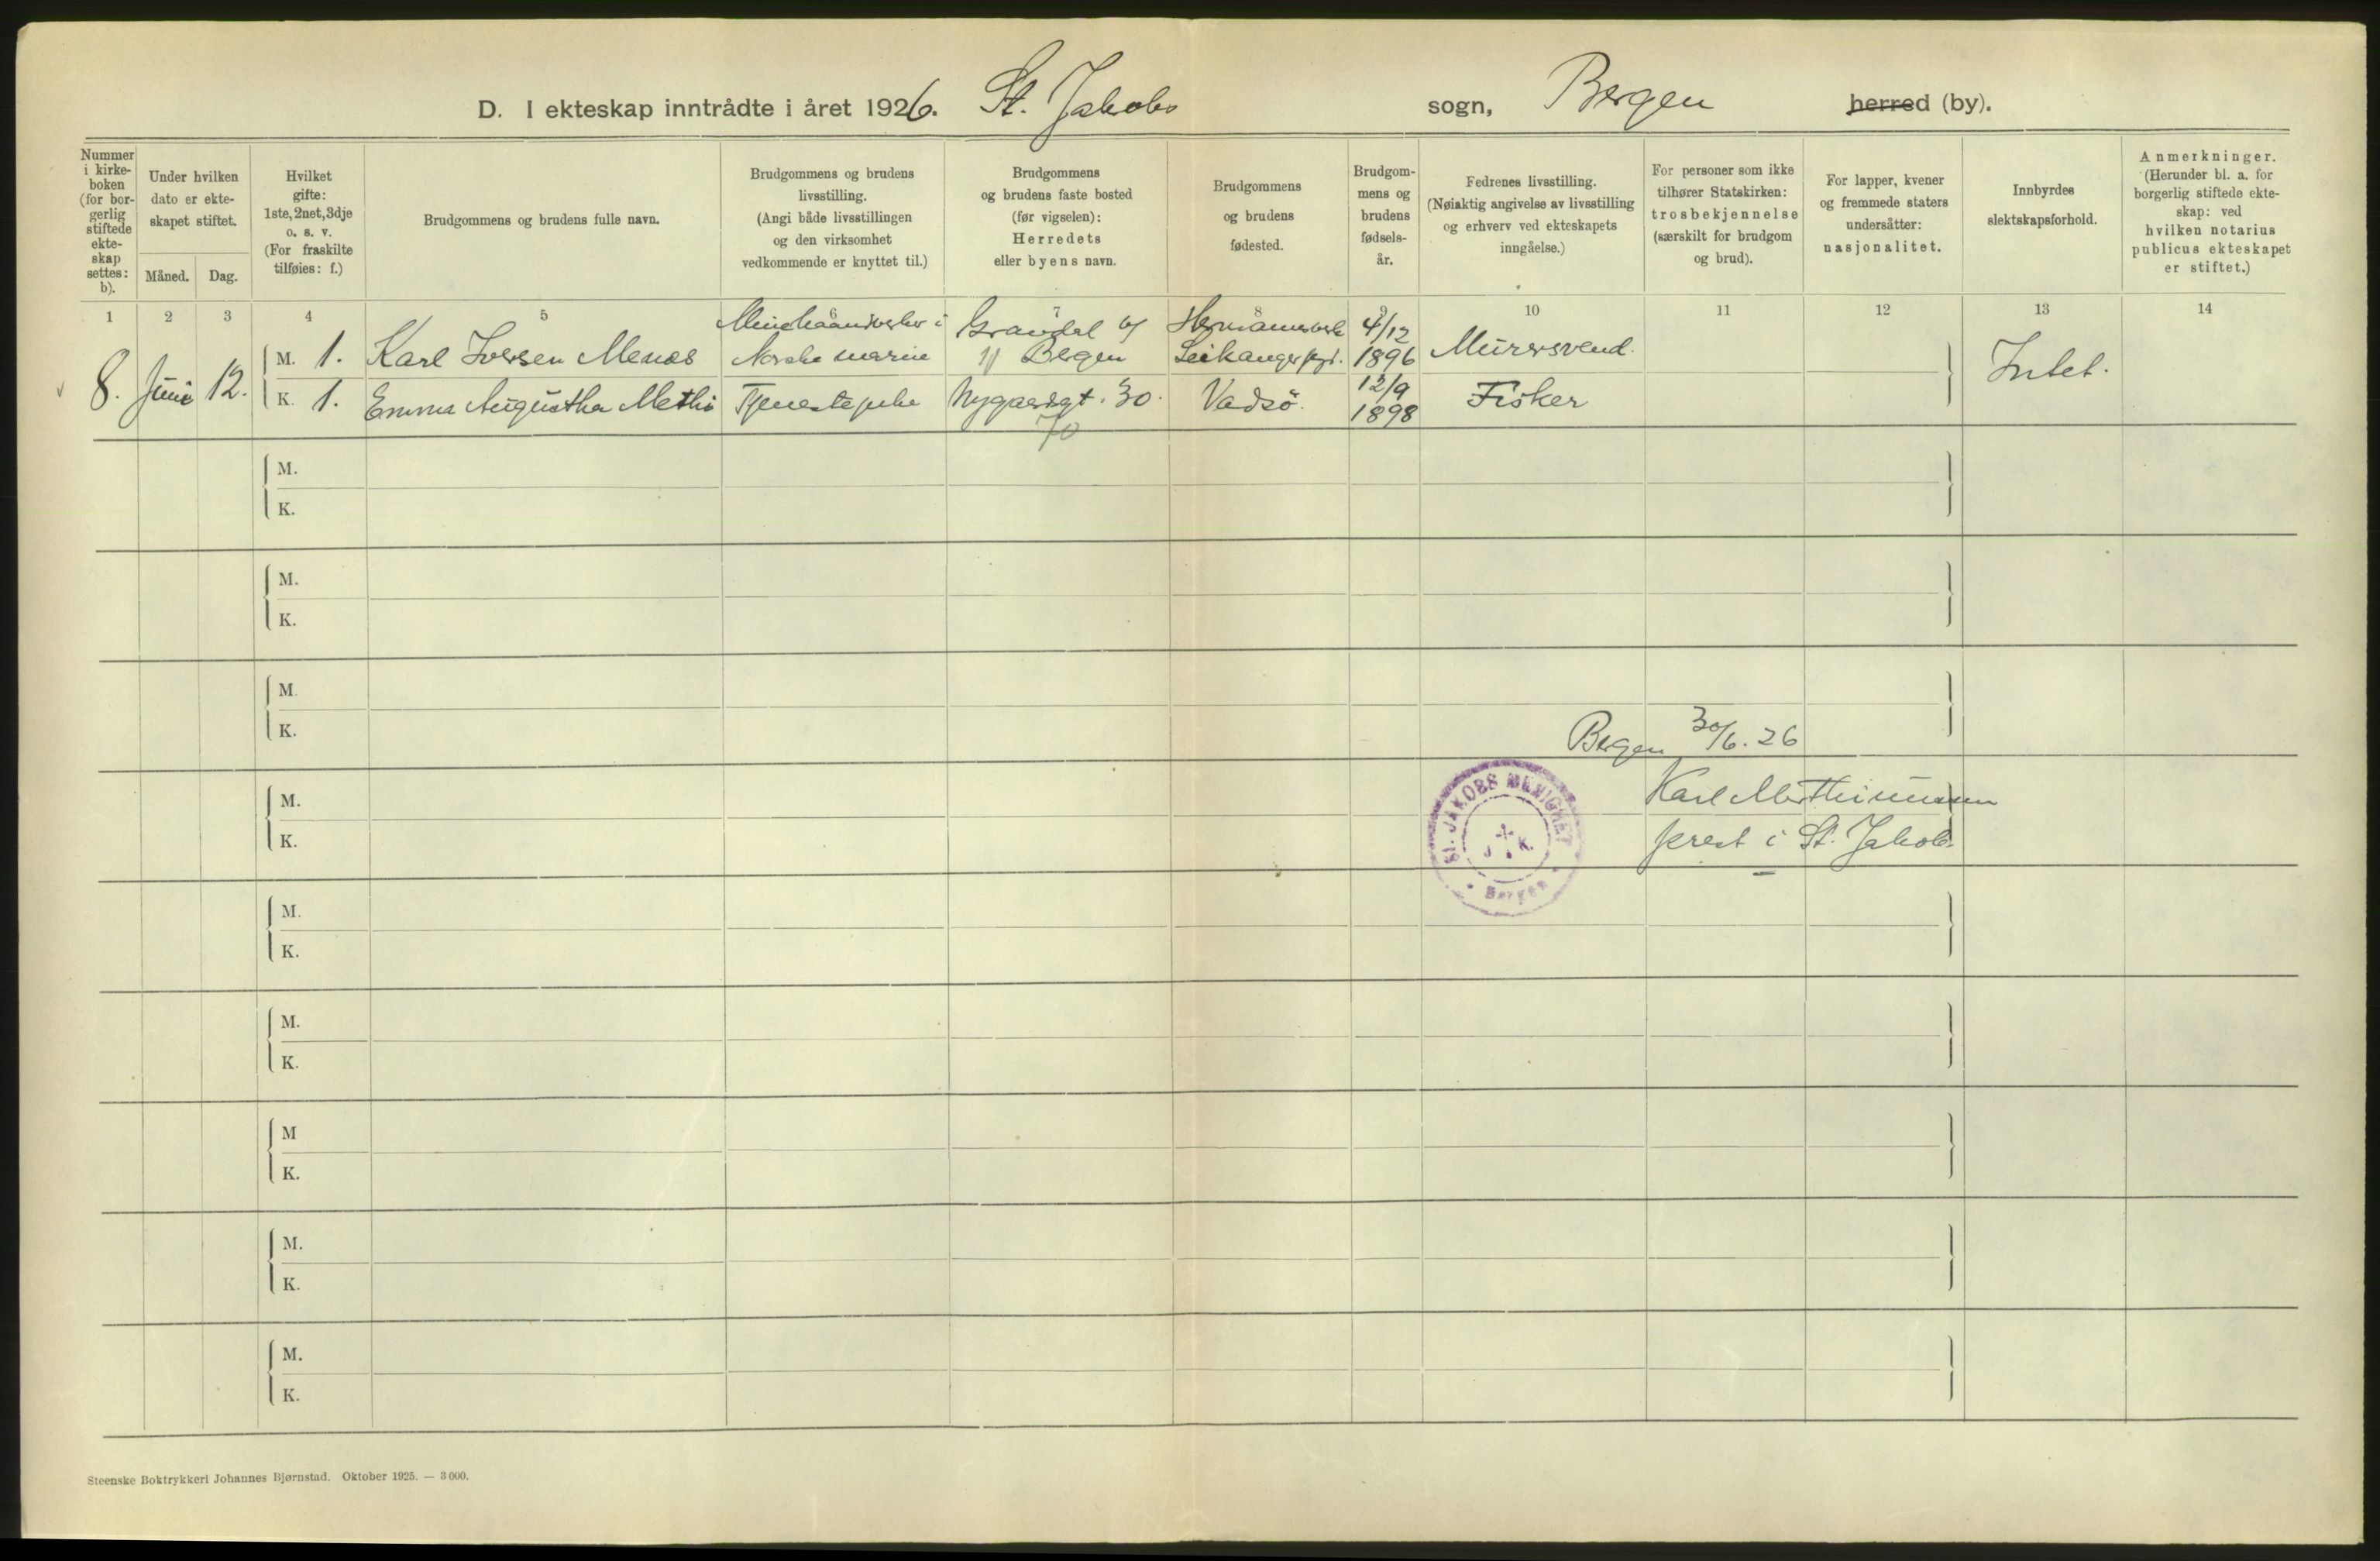 D. I ekteskap inntrådte i året 1926. St. Jakobs sogn, Bergen herred (by).
Nummer i kirke-boken (for bor-gerlig stiftede ekte-skap settes: b).
Under hvilken dato er ekte-skapet stiftet.
Måned. Dag.
Hvilket gifte: 1ste, 2net, 3dje o. s. v. (For fraskilte tilføies: f.)
Brudgommens og brudens fulle navn.
Brudgommens og brudens livsstilling. (Angi både livsstillingen og den virksomhet vedkommende er knyttet til.)
Brudgommens og brudens faste bosted (før vigselen): Herredets eller byens navn.
Brudgommens og brudens fødested.
Brudgom-mens og brudens fødsels-år.
Fedrenes livsstilling. (Nøiaktig angivelse av livsstilling og erhverv ved ekteskapets inngåelse.)
For personer som ikke tilhører Statskirken: trosbekjennelse (særskilt for brudgom og brud).
For lapper, kvener og fremmede staters undersåtter: nasjonalitet.
Innbyrdes slektskapsforhold.
Anmerkninger. (Herunder bl. a. for borgerlig stiftede ekte-skap: ved hvilken notarius publicus ekteskapet er stiftet.)
1 2 3 4 5 6 7 8 9 10 11 12 13 14
8. Juni 12.
M. 1. Karl Iversen Menes Minehaandverker i Norske marine Gravdal Bergen Hermansverk Leikanger 4/12 1896 Murersvend. Intet.
K. 1. Emma Augustha Mathi Tjenestepike Nygaardsgt. 30. Vadsö. 12/9 1898 Fisker
70
M.
K.
M.
K.
M.
K.
Bergen 30/6. 26
M.
Karl Marthinussen
K.
prest i St. Jakob
St. JAKOBS MENIGHET
J K.
Bergen
M.
K.
M.
K.
M
K.
M.
K.
M.
K.
Steenske Boktrykkeri Johannes Bjørnstad. Oktober 1925. — 3000.